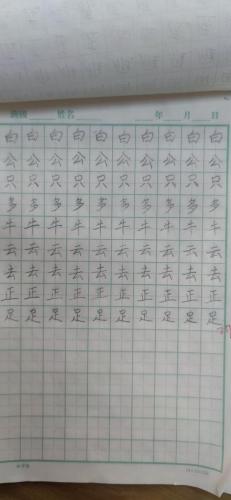 班级 姓名 年 月 日
白 白 白 白 白 白 白 白 白
公 公 公 公 公 公 公 公 公
只 只 只 只 只 只 只 只 只
多 多 多 多 多 多 多 多 多
牛 牛 牛 牛 牛 牛 牛 牛 牛
云 云 云 云 云 云 云 云 云
去 去 去 去 去 去 去 去 去
正 正 正 正 正 正 正 正 正
足 足 足 足 足 足 足 足 足